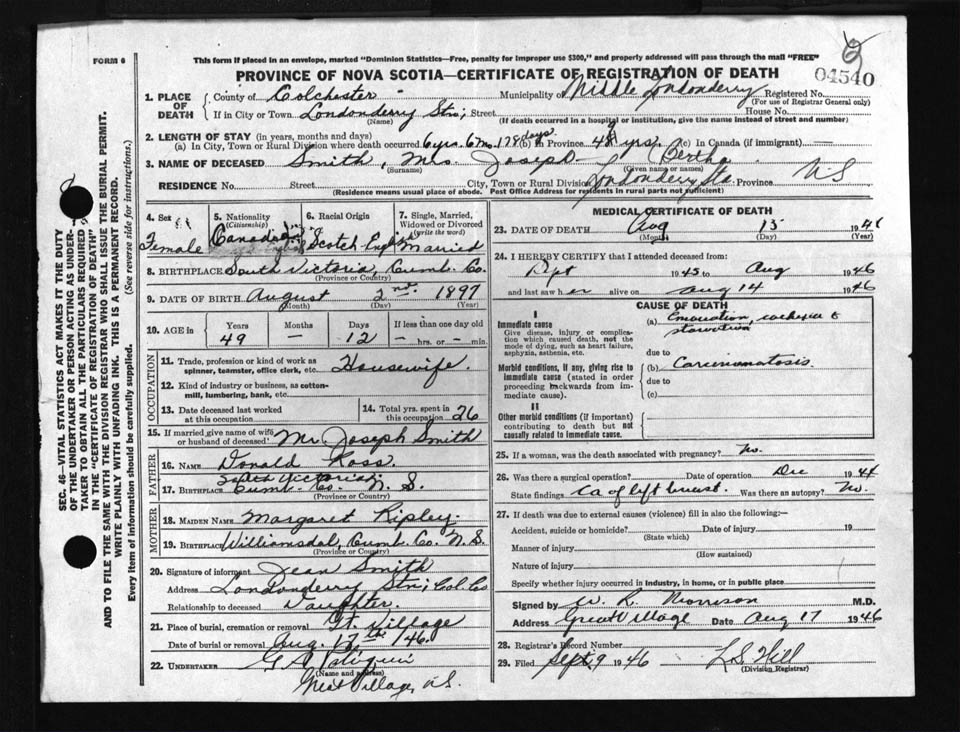 FORM 6
This form if placed in an envelope, marked "Dominion Statistics—Free, penalty for improper use $300," and properly addressed will pass through the mail "FREE"
PROVINCE OF NOVA SCOTIA—CERTIFICATE OF REGISTRATION OF DEATH
04540
1. PLACE OF DEATH
County of Colchester Municipality of Middle Londonderry Registered No.
(For use of Registrar General only)
If in City or Town Londonderry Stn; Street House No.
(Name) (If death occurred in a hospital or institution, give the name instead of street and number)
2. LENGTH OF STAY (in years, months and days)
(a) In City, Town or Rural Division where death occurred 6 yrs. 6 Mo. 178 days. (b) in Province 48 yrs. (c) In Canada (if immigrant)
3. NAME OF DECEASED Smith, Mrs. Joseph (Bertha
(Surname) (Given name or names)
RESIDENCE No. Street City, Town or Rural Division Londonderry Sta. Province N S
(Residence means usual place of abode. Post Office Address for residents in rural parts not sufficient)
4. Sex
Female
5. Nationality
(Citizenship)
Canadian
6. Racial Origin
Scotch-English
7. Single, Married, Widowed or Divorced
(Write the word)
Married
8. BIRTHPLACE South Victoria, Cumb. Co.
(Province or Country)
9. DATE OF BIRTH August 2nd. 1897
(Month) (Day) (Year)
10. AGE in
Years Months Days If less than one day old
49 — 12 — hrs. or — min.
OCCUPATION
11. Trade, profession or kind of work as spinner, teamster, office clerk, etc. Housewife.
12. Kind of industry or business, as cotton-mill, lumbering, bank, etc.
13. Date deceased last worked at this occupation
14. Total yrs. spent in this occupation 26
15. If married give name of wife or husband of deceased Mr Joseph Smith
FATHER
16. NAME Donald Ross.
17. BIRTHPLACE South Victoria, Cumb. Co. N. S.
(Province or Country)
MOTHER
18. MAIDEN NAME Margaret Ripley.
19. BIRTHPLACE Williamsdal, Cumb. Co. N. S.
(Province or Country)
20. Signature of informant Jean Smith
Address Londonderry Stn; Col. Co
Relationship to deceased Daughter.
21. Place of burial, cremation or removal Gt. Village
Date of burial or removal Aug. 17th /46.
22. UNDERTAKER
(Name and address)
Great Village, N.S.
MEDICAL CERTIFICATE OF DEATH
23. DATE OF DEATH Aug 15 1946
(Month) (Day) (Year)
24. I HEREBY CERTIFY that I attended deceased from:
Sept 1945 to Aug 1946
and last saw her alive on Aug 14 1946
CAUSE OF DEATH
I
Immediate cause
Give disease, injury or complication which caused death, not the mode of dying, such as heart failure, asphyxia, asthenia, etc.
(a) Emaciation, cachexia & starvation
due to
Morbid conditions, if any, giving rise to immediate cause (stated in order proceeding backwards from immediate cause).
(b) Carcinomatosis.
due to
(c)
II
Other morbid conditions (if important) contributing to death but not causally related to immediate cause.
25. If a woman, was the death associated with pregnancy? No.
26. Was there a surgical operation? Date of operation Dec 1944
State findings Ca of left breast. Was there an autopsy? No.
27. If death was due to external causes (violence) fill in also the following:—
Accident, suicide or homicide? Date of injury 19
(State which)
Manner of injury
(How sustained)
Nature of injury
Specify whether injury occurred in industry, in home, or in public place
Signed by W. R. Morrison M.D.
Address Great Village Date Aug 17 1946
28. Registrar's Record Number
29. Filed Sept. 9 1946 L S Hill
(Division Registrar)
SEC. 46—VITAL STATISTICS ACT MAKES IT THE DUTY
OF THE UNDERTAKER OR PERSON ACTING AS UNDER-
TAKER TO OBTAIN ALL THE PARTICULARS REQUIRED
IN THE "CERTIFICATE OF REGISTRATION OF DEATH"
AND TO FILE THE SAME WITH THE DIVISION REGISTRAR WHO SHALL ISSUE THE BURIAL PERMIT.
WRITE PLAINLY WITH UNFADING INK. THIS IS A PERMANENT RECORD.
Every item of information should be carefully supplied. (See reverse side for instructions.)